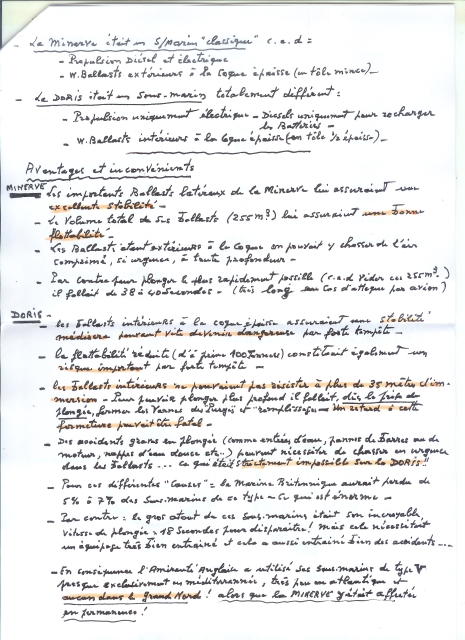 - La Minerve était un S/Marin "classique" c.a.d =
- Propulsion Diesel et électrique
- W. Ballasts extérieurs à la Coque épaisse (en tôle mince) -
- Le DORIS était un Sous-marin totalement différent :
- Propulsion uniquement électrique - Diesels uniquement pour recharger
les Batteries -
- W. Ballasts intérieurs à la Coque épaisse (en tôle épaisse) -
Avantages et inconvénients
MINERVE - Les importants Ballasts latéraux de la Minerve lui assuraient une
excellente stabilité -
- Le Volume total de ses Ballasts (255 m3) lui assurait une bonne
flottabilité -
- Les Ballasts étant extérieurs à la Coque on pouvait y chasser de l'air
comprimé, si urgence, à toute profondeur -
- Par contre pour plonger le plus rapidement possible (c.a.d vider ces 255 m3)
il fallait de 38 à 40 secondes - (très long en cas d'attaque par avion)
DORIS - les ballasts intérieurs à la coque épaisse assuraient une stabilité
médiocre pouvant vite devenir dangereuse par forte tempête -
- la flottabilité réduite (d'à peine 100 Tonnes) constituait également un
risque important par forte tempête -
- les ballasts intérieurs ne pouvaient pas résister à plus de 35 mètres d'im-
mersion - Pour pouvoir plonger plus profond il fallait, dès la prise de
plongée, fermer les Vannes de Purges et "remplissage" - Un retard à cette
fermeture pouvait être fatal -
- Des accidents graves en plongée (comme entrées d'eau, pannes de barres ou de
moteur, nappes d'eau douce etc..) peuvent nécessiter de chasser en urgence
dans les ballasts ... ce qui était strictement impossible sur la DORIS !!
- Pour ces différentes "Causes" = la Marine Britannique aurait perdu de
5% à 7% des Sous-marins de ce type - Ce qui est énorme -
- Par contre : le gros atout de ces Sous-marins était son incroyable
Vitesse de plongée = 18 Secondes pour disparaître ! mais cela nécessitait
un équipage très bien entraîné et cela a aussi entraîné bien des accidents ....
- En conséquence l'Amirauté Anglaise a utilisé ses sous-marins de type V
presque exclusivement en méditerranée, très peu en atlantique et
aucun dans le grand Nord ! alors que la MINERVE y était affectée
en permanence !